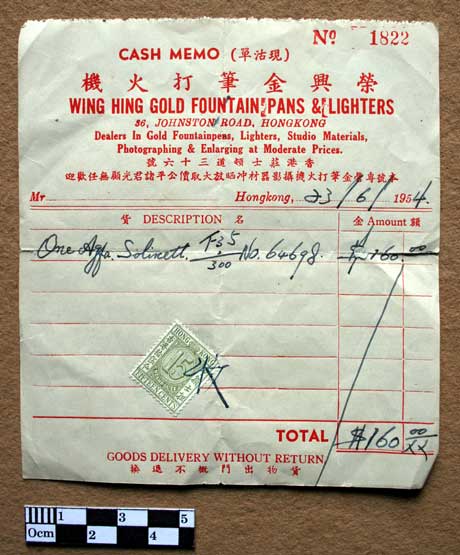 Nº 1822
CASH MEMO (單沽現)
機火打筆金興榮
WING HING GOLD FOUNTAIN PANS & LIGHTERS
36, JOHNSTON ROAD, HONGKONG
Dealers In Gold Fountainpens, Lighters, Studio Materials,
Photographing & Enlarging at Moderate Prices.
號六十三道頓莊港香
迎歡任無顧光君諸平公價取大放晒冲材器影攝機火打筆金
Mr Hongkong, 23/6/1954.
貨 DESCRIPTION 名 金 Amount 額
One Agfa Solinett F3.5/300 No. 64698. $160.00
HONG KONG
15
FIFTEEN CENTS
TOTAL $160.00
GOODS DELIVERY WITHOUT RETURN
換退不概門出物貨
1 3 5
0cm 2 4